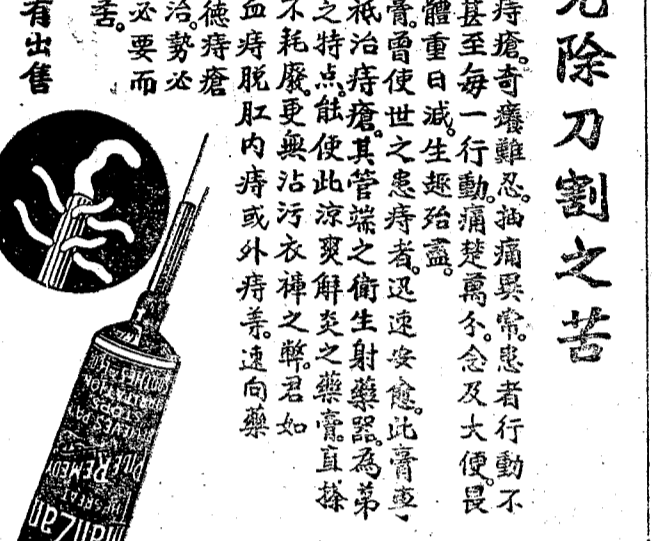 免除刀割之苦
痔瘡。奇癢難忍。抽痛異常。患者行動不
甚至每一行動。痛楚萬分。念及大便。畏
體重日減。生趣殆盡。
膏。曾使世之患痔者。迅速安愈。此膏專
祇治痔瘡。其管端之衛生射藥器。為第
之特点。能使此涼爽解炎之藥膏。直搽
不耗廢。更無沾污衣褲之弊。君如
血痔脫肛内痔或外痔等。速向藥
德痔瘡
治。勢必
必要而
苦。
有出售
ManZan
GREAT
PILE REMEDY
STOPS